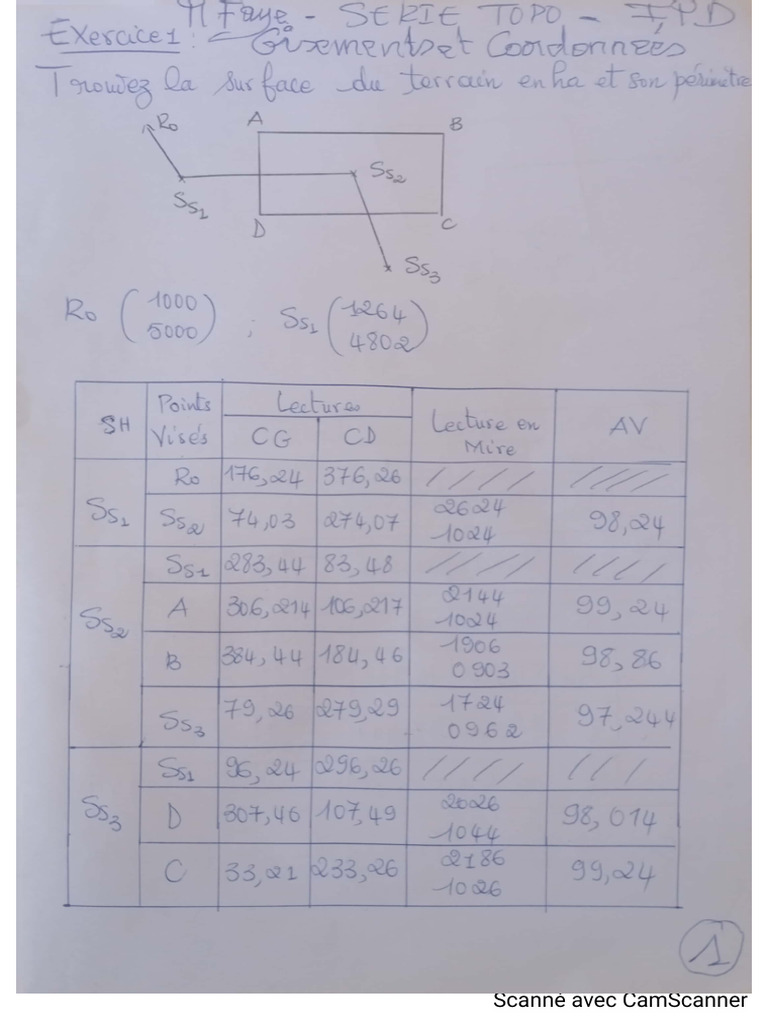 M Faye - SERIE TOPO - IPD
Exercice 1 : Gisements et Coordonnées
Trouvez la surface du terrain en ha et son périmètre
Ro A B
Ss1 Ss2
D C
Ss3
Ro (1000 5000) ; Ss1 (1264 4802)
SH Points Visés Lectures Lecture en Mire AV
CG CD
Ss1 Ro 176,24 376,26
Ss2 74,03 274,07 2624 1024 98,24
Ss2 Ss1 283,44 83,48
A 306,214 106,217 2144 1024 99,24
B 384,44 184,46 1906 0903 98,86
Ss3 79,26 279,29 1724 0962 97,244
Ss3 Ss1 96,24 296,26
D 307,46 107,49 2026 1044 98,014
C 33,21 233,26 2186 1026 99,24
1
Scanné avec CamScanner